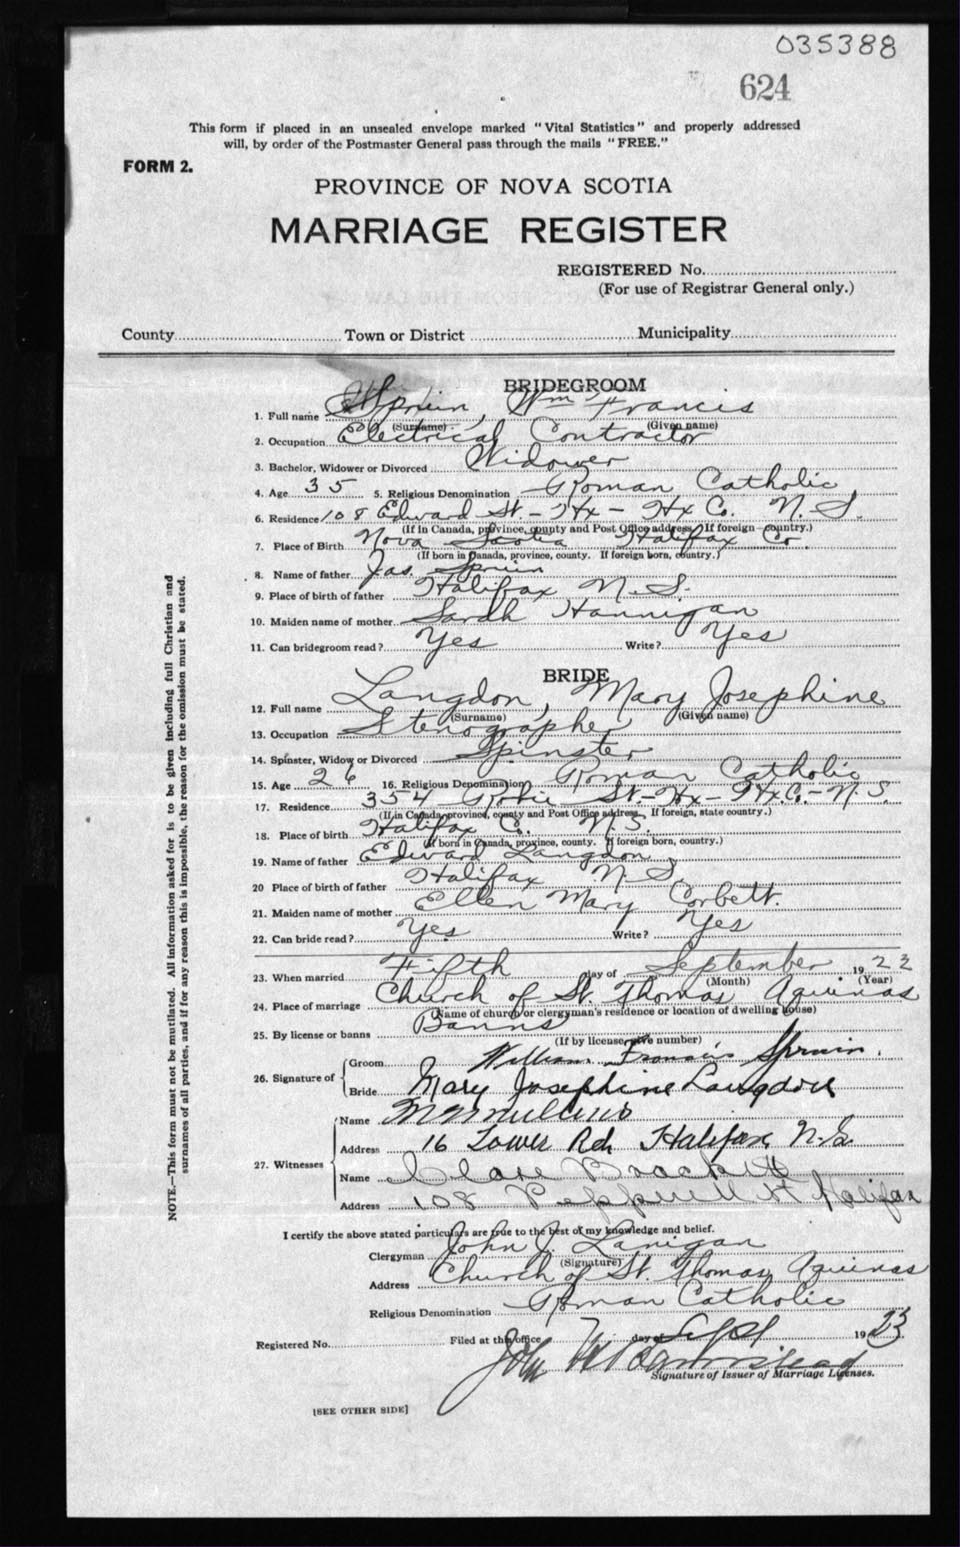 035388
624
This form if placed in an unsealed envelope marked "Vital Statistics" and properly addressed
will, by order of the Postmaster General pass through the mails "FREE."
FORM 2.
PROVINCE OF NOVA SCOTIA
MARRIAGE REGISTER
REGISTERED No.
(For use of Registrar General only.)
County Town or District Municipality
BRIDEGROOM
1. Full name Spruin, Wm Francis
(Surname) (Given name)
2. Occupation Electrical Contractor
3. Bachelor, Widower or Divorced Widower
4. Age 35 5. Religious Denomination Roman Catholic
6. Residence 108 Edward St. - Hx - Hx Co. N. S.
(If in Canada, province, county and Post Office address. If foreign - country.)
7. Place of Birth Nova Scotia Halifax Co.
(If born in Canada, province, county. If foreign born, country.)
8. Name of father Jas. Spruin
9. Place of birth of father Halifax N. S.
10. Maiden name of mother Sarah Hannigan
11. Can bridegroom read? Yes Write? Yes
BRIDE
12. Full name Langdon, Mary Josephine
(Surname) (Given name)
13. Occupation Stenographer
14. Spinster, Widow or Divorced Spinster
15. Age 26 16. Religious Denomination Roman Catholic
17. Residence 354 Robie St. - Hx - Hx. C. - N. S.
(If in Canada, province, county and Post Office address. If foreign, state country.)
18. Place of birth Halifax C. N. S.
(If born in Canada, province, county. If foreign born, country.)
19. Name of father Edward Langdon
20 Place of birth of father Halifax N. S.
21. Maiden name of mother Ellen Mary Corbett.
22. Can bride read? Yes. Write? Yes
23. When married Fifth day of September 19
(Month) (Year)
24. Place of marriage Church of St. Thomas Aquinas
(Name of church or clergyman's residence or location of dwelling house)
25. By license or banns Banns
(If by license, give number)
26. Signature of Groom William Francis Spruin.
Bride Mary Josephine Langdon
27. Witnesses Name
Address 16 Tower Rd. Halifax, N.S.
Name Clare
Address 108 Pepperell St Halifax
I certify the above stated particulars are true to the best of my knowledge and belief.
Clergyman John J. Lanigan
(Signature)
Address Church of St. Thomas Aquinas
Religious Denomination Roman Catholic
Registered No. Filed at this office 7 day of Sept 1923
John
Signature of Issuer of Marriage Licenses.
[SEE OTHER SIDE]
NOTE.—This form must not be mutilated. All information asked for is to be given including full Christian and
surnames of all parties, and if for any reason this is impossible, the reason for the omission must be stated.